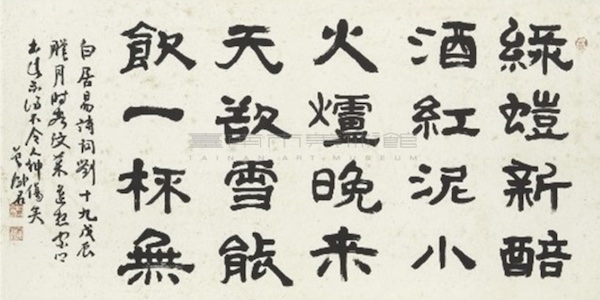 綠螘新醅
酒紅泥小
火爐晚来
天欲雪能
飲一杯無
白居易詩問劉十九戊辰
臘月時
臺南市美術館
TAINAN ART MUSEUM